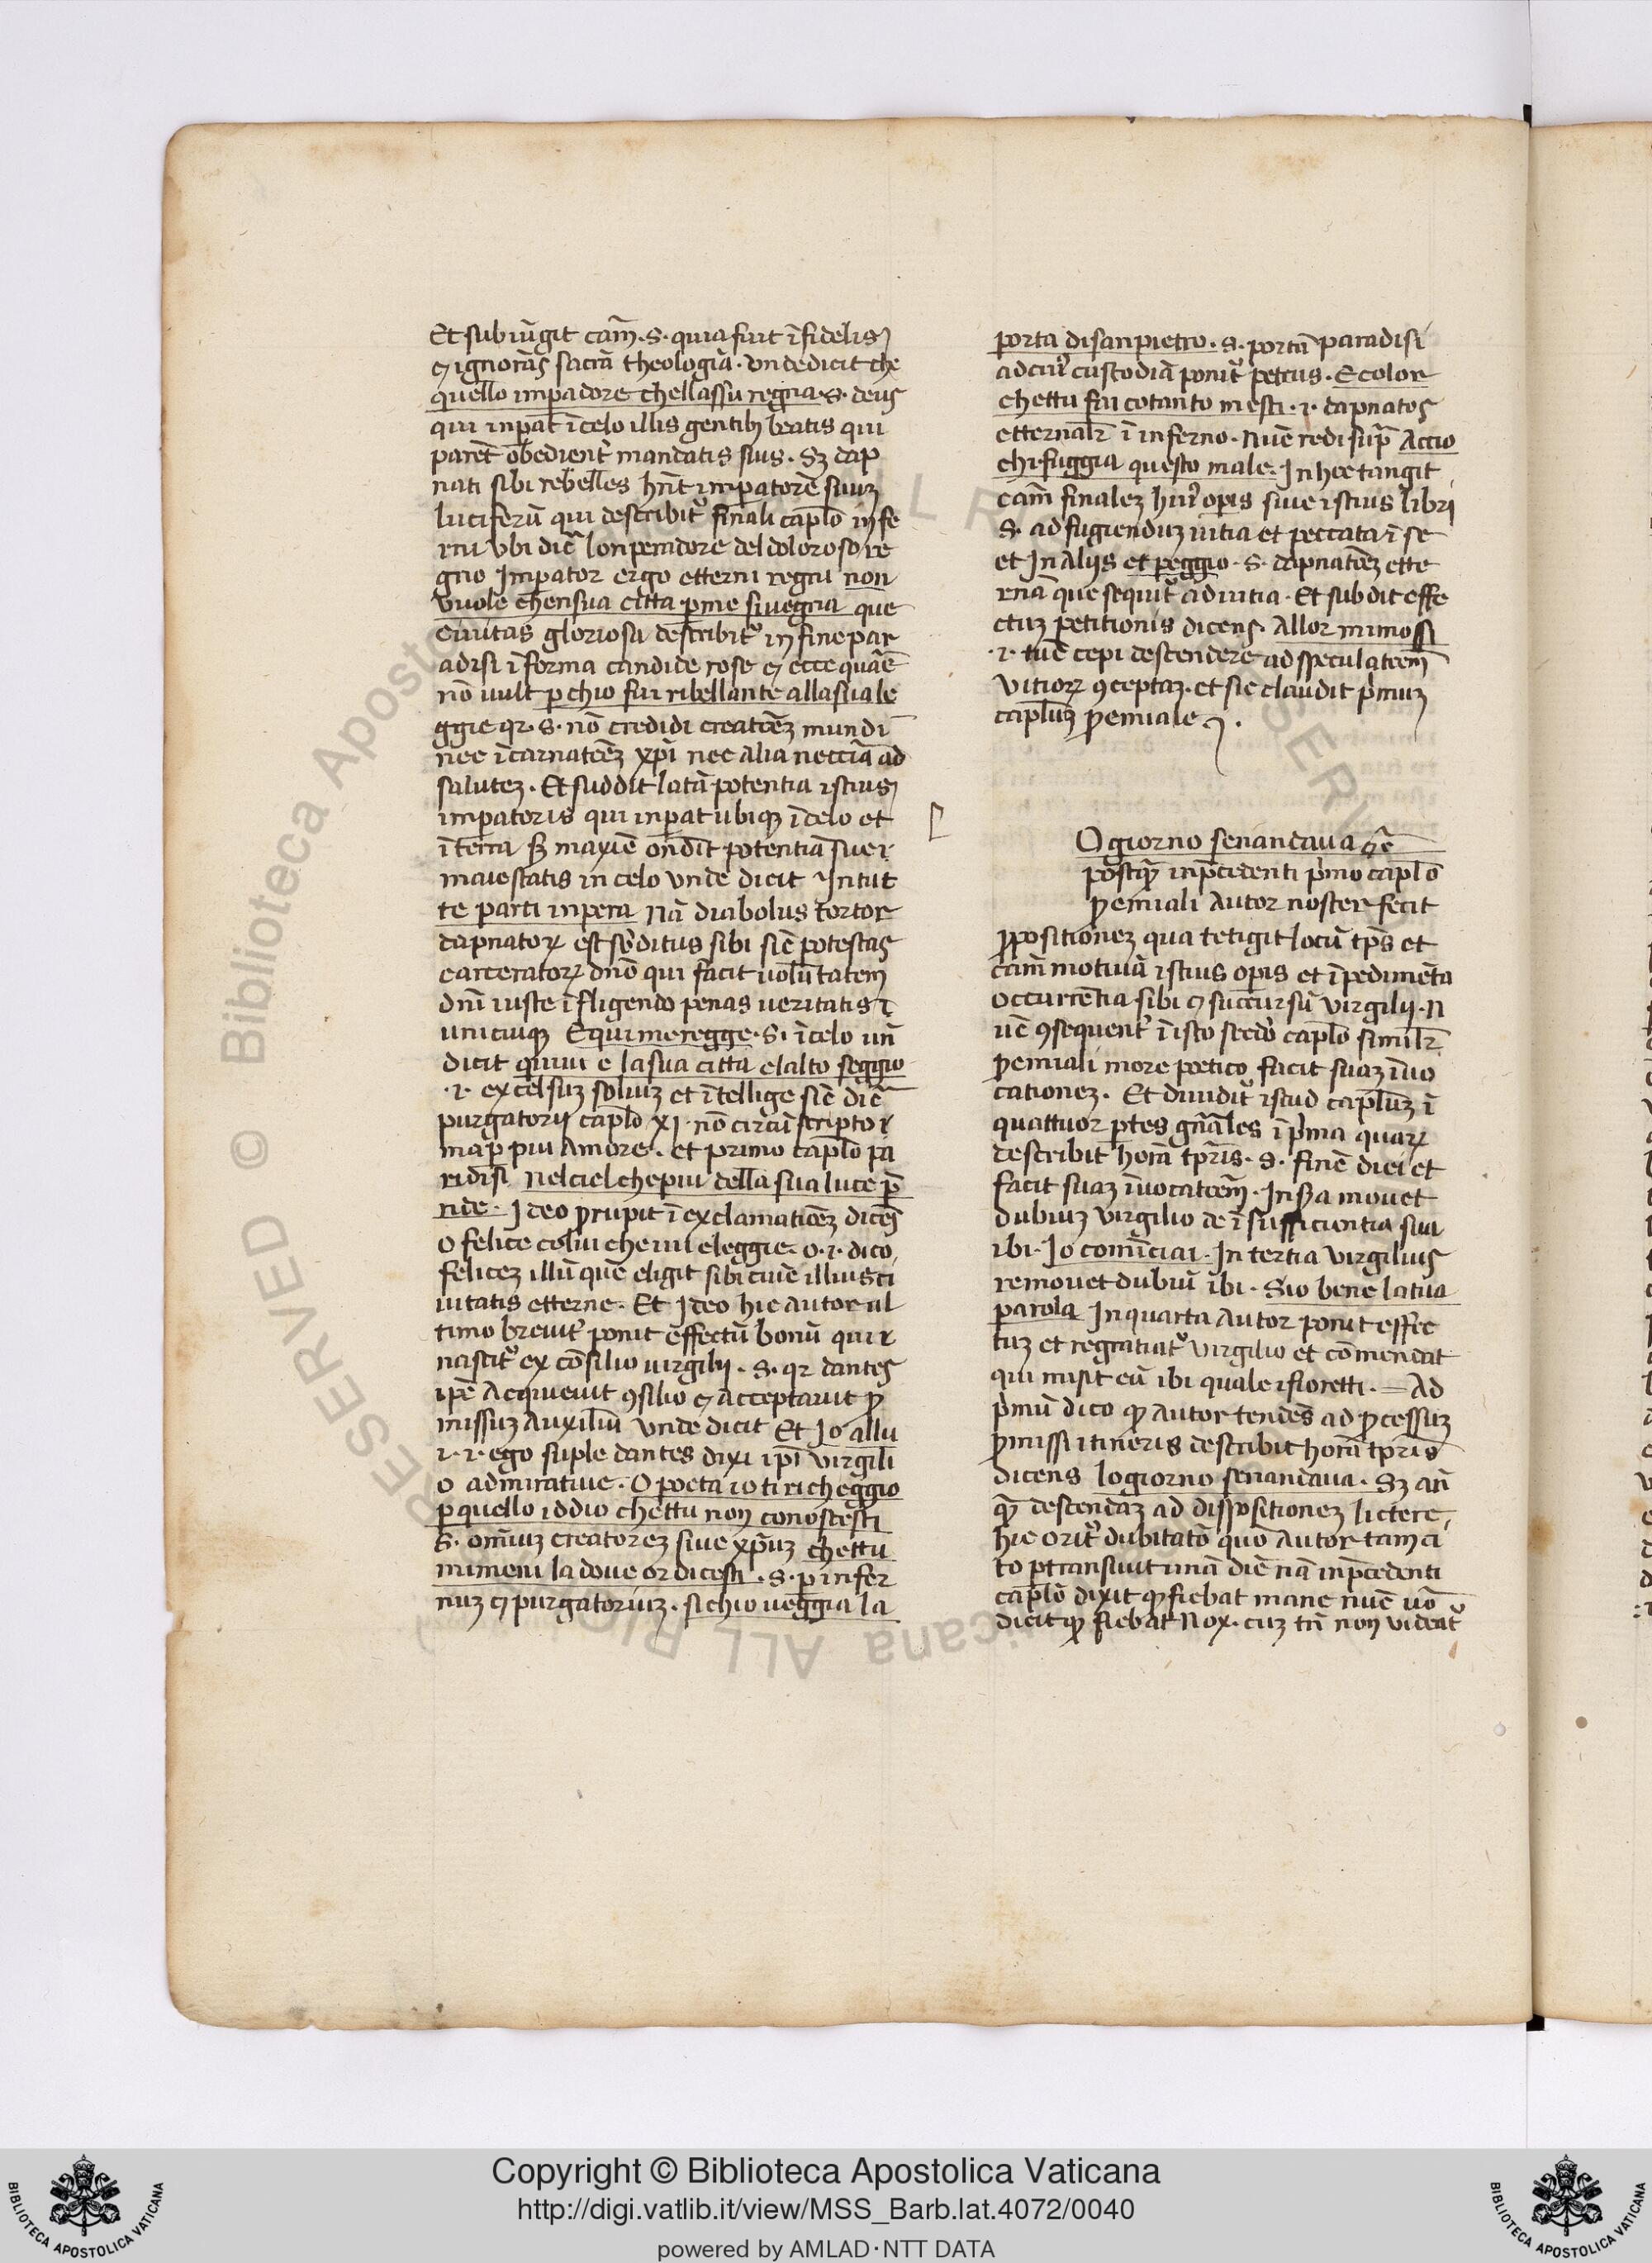 Et subiūgit cām̄ .S. quia fuit īfidelis
⁊ ignorās sacrā theologiā . vnde dicit che
quello imperadore chellassu regna .S. deus
qui inpat ī celo illis gentibȝ beatis qui
parēt obediēnt mandatis suis . Sȝ dap
nati sibi rebelles hn̄t imperatorē suuȝ
luciferū qui describit᷑ finali caplō infe
rni vbi dic̄ lonperadore del doloroso re
gno Imperator ergo etterni regni non
vuole chensua citta per me siuegna que
ciuitas gloriosa describit᷑ in fine par
adisi ī forma candide rose ⁊ ecce quārē
nō uult perchio fui ribellante alla sua le
ggie qr .S. nō credidi creatōeȝ mundi
nec īcarnatōeȝ xpī nec alia neccīa ad
salutez . Et suddit latā potentia istius
imperatoris qui inpat ubiqȝ ī celo et
ī terra sȝ maxīe on̄dit potentiā sue
maiestatis in celo vnde dicit Intut
te parti inpera nā diabolus tortor
dapnatorꝝ est sb̄ditus sibi sic̄ potestas
carceratorꝝ dn̄o qui facit uolūtatem
dn̄i iuste īfligendo penas ueritatis ī
unicuiqȝ Equi me regge .S. ī celo un̄
dicit quiui e la sua citta elalto seggio
.i. excelsuȝ soliuȝ et ītellige sic̄ dic̄
purgatorij caplō xj . nō circūscripto
ma per piu Amore . et primo caplō pa
radisi Nel ciel che piu della sua luce pē
nde . Ideo prupit ī exclamatiōeȝ dicēs
o felice colui che iui eleggie . o .i. dico
felicez illū quē eligit sibi ciuē illius ci
uitatis etterne . Et Ideo hic autor ul
timo breuit᷑ ponit effectū bonū qui
nascit᷑ ex consilio uirgilij . S. qr dantes
ipē Acquieuit ꝯsilio ⁊ acceptauit ꝓ
missuȝ Auxiliū vnde dicit Et Io allu
i .i. ego suple dantes dixi ipī virgili
o admiratiue . O poeta io ti richeggio
per quello iddio chettu non conoscesti
S. omniuȝ creatorez siue xp̄uȝ chettu
mimeni la doue or dicesti . S. per infer
nuȝ ⁊ purgatoriuȝ . sichio ueggia la
porta di san pietro . S. portā paradisi
ad cuiꝰ custodiā ponit᷑ petrus . E color
chettu fai cotanto mesti .i. dapnatos
etternalr̄ ī inferno . Nūc redi supra Accio
chi fuggia questo male . In hoc tangit
cām̄ finalez huiꝰ opis siue istius libri
S. ad fugienduȝ uitia et peccata ī se
et In Alijs et peggio . S. dapnatōeȝ ette
rnā que sequit᷑ ad uitia . Et subdit effe
ctuȝ petitionis dicens Allor si mosse
.i. tūc cepi descendere ad speculatōem̄
vitiorꝝ ꝯceptaȝ . et sic claudit pr̄muȝ
caplūȝ ꝓemiale .
O giorno senandaua ⁊c̄
postqȝ in prēcedenti pr̄mo caplō
ꝓemiali Autor noster fecit
ꝓpositionez qua tetigit locū tp̄s et
cām̄ motiuā istius opis et īpedimēta
occurrentia sibi ⁊ succursū virgilij . N
ūc ꝯsequent᷑ ī isto secdo caplō similr̄
ꝓemiali more poetico facit suaȝ īuo
cationez . Et diuidit᷑ istud caplūȝ ī
quattuor ptes gn̄ales ī pr̄ma quarꝝ
describit horā tpr̄is . S. finē diei et
facit suaȝ īuocatōem̄ . In sb̄a mouet
dubiuȝ virgilio de īsufficientia sui
ibi . Io cominciai . In tertia virgilius
remouet dubiū ibi . Sio bene la tua
parola In quarta Autor ponit effec
tuȝ et regratiat᷑ virgilio et cōmendat
qui misit eū ibi quale i fioretti . — Ad
pr̄mū dico ꝙ Autor tendēs ad ꝓcessuȝ
ꝓmissi itineris describit horā tpr̄is
dicens lo giorno senandaua . Sȝ an̄
qȝ descendaȝ ad dispositionez lictere
hic orit᷑ dubitatō quo Autor tam ci
to ptransiuit unā diē nā in prēcedenti
caplō dixit ꝙ fiebat mane nūc uō
dicit ꝙ fiebat Nox . cuȝ tn̄ non videat᷑
Copyright © Biblioteca Apostolica Vaticana
http://digi.vatlib.it/view/MSS_Barb.lat.4072/0040
powered by AMLAD·NTT DATA